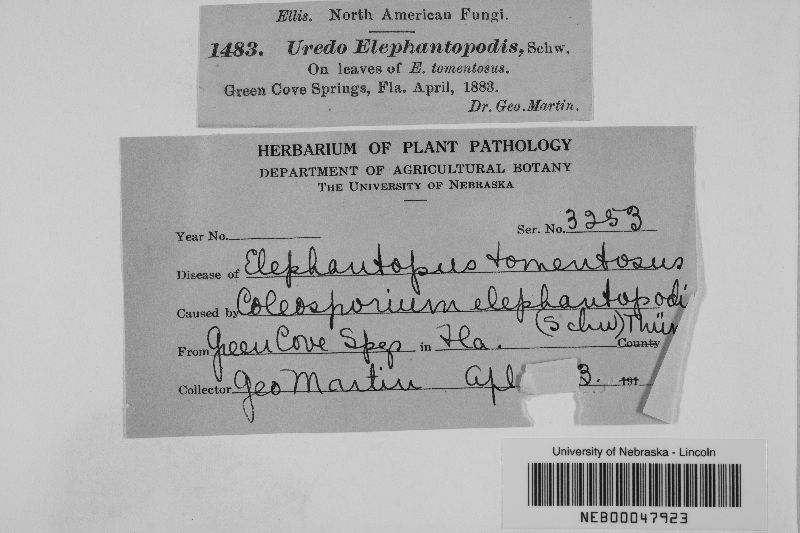 Ellis. North American Fungi.
1483. Uredo Elephantopodis, Schw.
On leaves of E. tomentosus.
Green Cove Springs, Fla. April, 1883.
Dr. Geo. Martin.
HERBARIUM OF PLANT PATHOLOGY
DEPARTMENT OF AGRICULTURAL BOTANY
THE UNIVERSITY OF NEBRASKA
Year No. Ser. No. 3253
Disease of Elephantopus tomentosus
Caused by Coleosporium elephantopodi
(Schw) Thüm
From Green Cove Spgs in Fla. County
Collector Geo Martin Apl 3. 191
University of Nebraska - Lincoln
NEB00047923